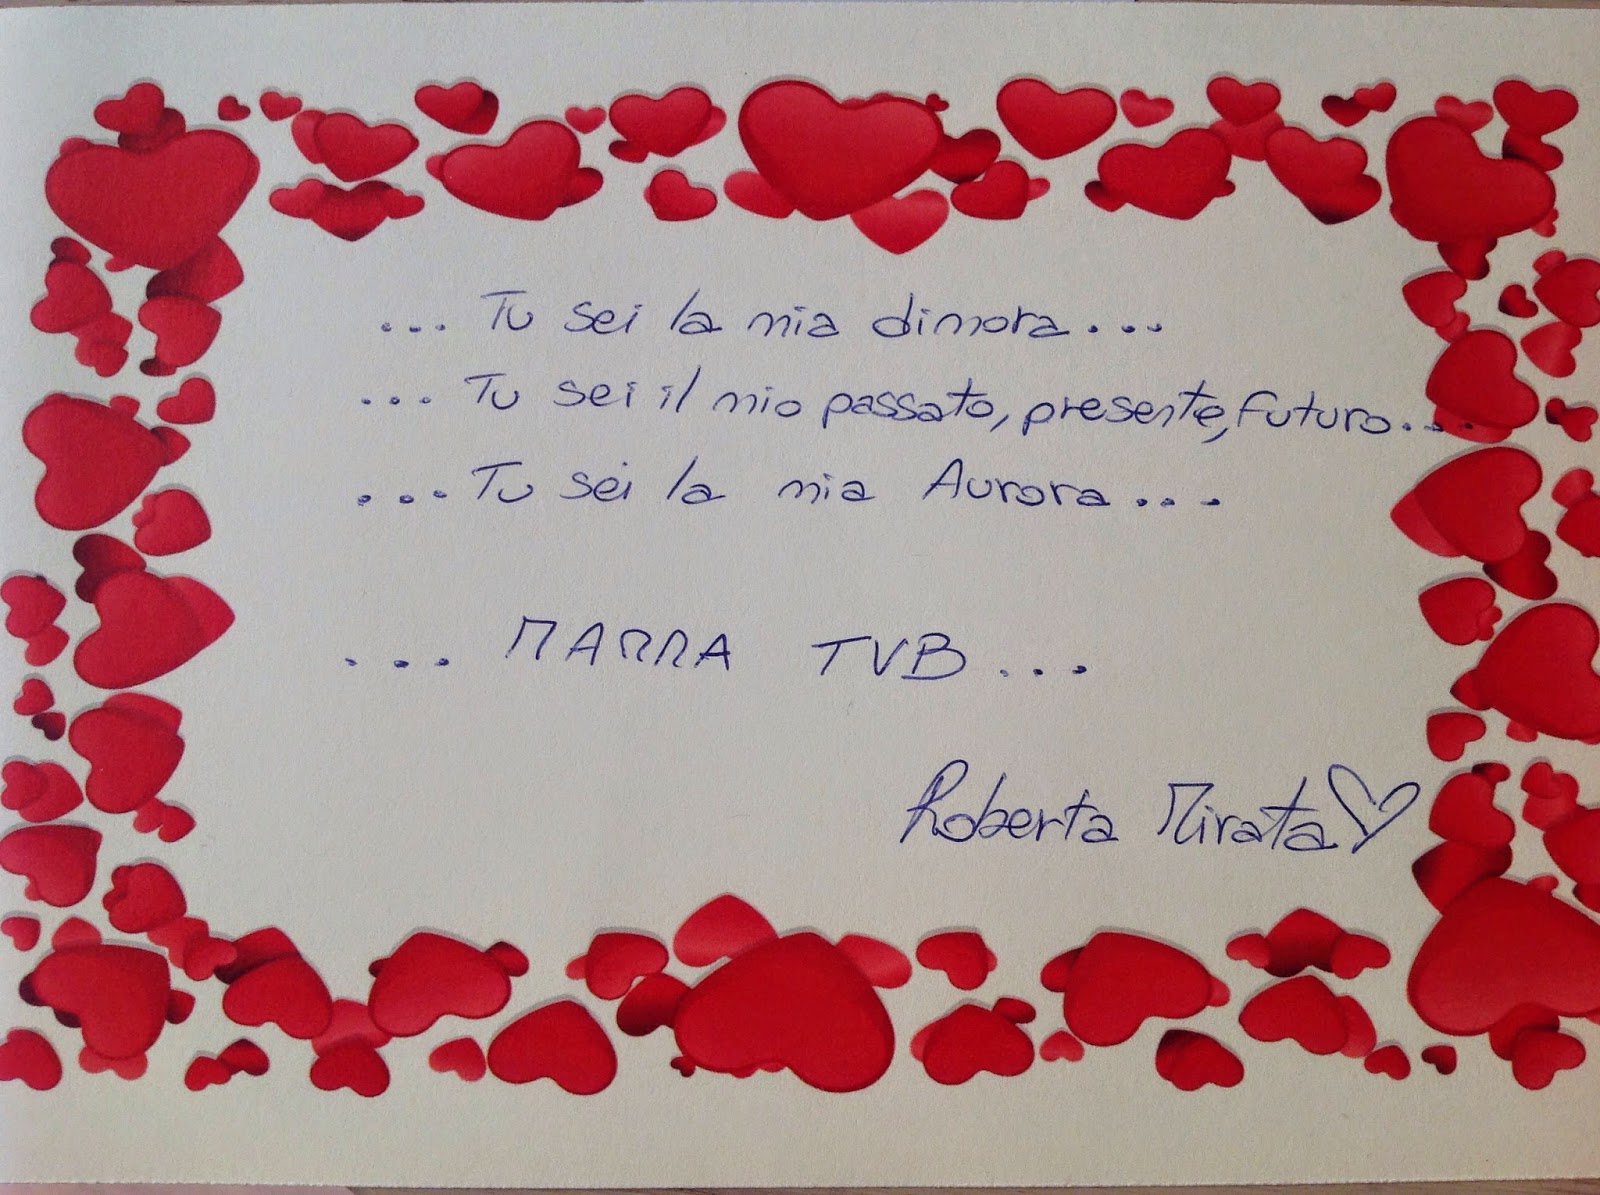 ... Tu sei la mia dimora...
... Tu sei il mio passato, presente, futuro....
... Tu sei la mia Aurora...
... MARRA TVB...
Roberta Mirata